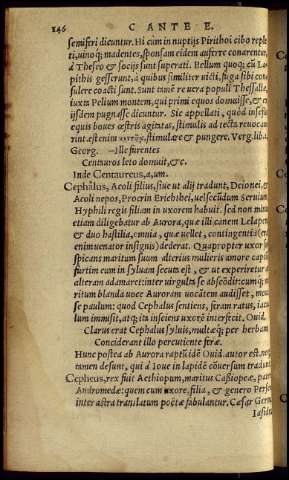 146 C ANTE E.
semiferi dicuntur. Hi cùm in nuptijs Pirithoi cibo reple
ti, uinoq; madentes, sponsam eidem auferre conarentur,
à Theseo & socijs sunt superati. Bellum quoq; cũ La
pithis gesserunt, à quibus similiter uicti, fuga sibi con
sulere coacti sunt. Sunt tamẽ re uera populi Thessaliæ,
iuxta Pelium montem, qui primi equos domasse, & ex
ijsdem pugnasse dicuntur. Sic appellati, quòd insesis
equis boues œstris agitatas, stimulis ad tecta reuoca
rint: est enim stimulare & pungere. Verg. lib.
Georg. —Ille furentes
Centauros leto domuit, &c.
Inde Centaureus, a, um.
Cephălus, Aeoli filius, siue ut alij tradunt, Deionei, &
Aeoli nepos, Procrin Erichthei, uel secundum Seruium
Hyphili regis filiam in uxorem habuit. sed non minus
etiam diligebatur ab Aurora, quæ illi canem Lelapem
& duo hastilia, omnia, quæ uellet, contingentia (erat
enim uenator insignis) dederat. Quapropter uxor su
spicans maritum suum alterius mulieris amore captum
furtim eum in syluam secuta est, & ut experiretur an
alteram adamaret: inter uirgulta se abscõdit: cumq; ma
ritum blanda uoce Auroram uocãtem audisset, mouit
se paulum: quod Cephalus sentiens, feram ratus, iacu
lum immisit, atq; ita insciens uxorẽ interfecit. Ouid.
Clarus erat Cephalus syluis, multæq; per herbam
Conciderant illo percutiente feræ.
Hunc postea ab Aurora raptũ idẽ Ouid. autor est.
tamen desunt, qui à Ioue in lapidẽ cõuersum tradunt.
Cepheus, rex fuit Aethiopum, maritus Caßiopeæ, pater
Andromedæ: quem cum uxore, filia, & genero Perseo
inter astra translatum poëtæ fabulantur. Cæsar Germ.
Iasidæ